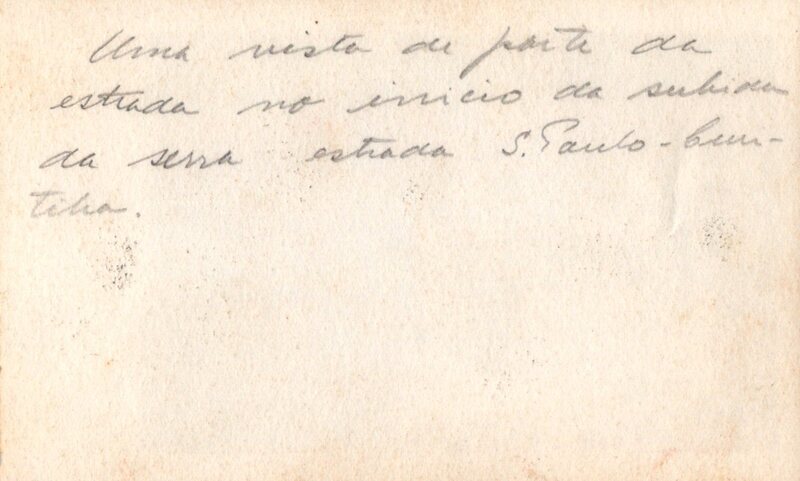 Uma vista de parte da
estrada no inicio da subida
da serra estrada S. Paulo-Curi-
tiba.